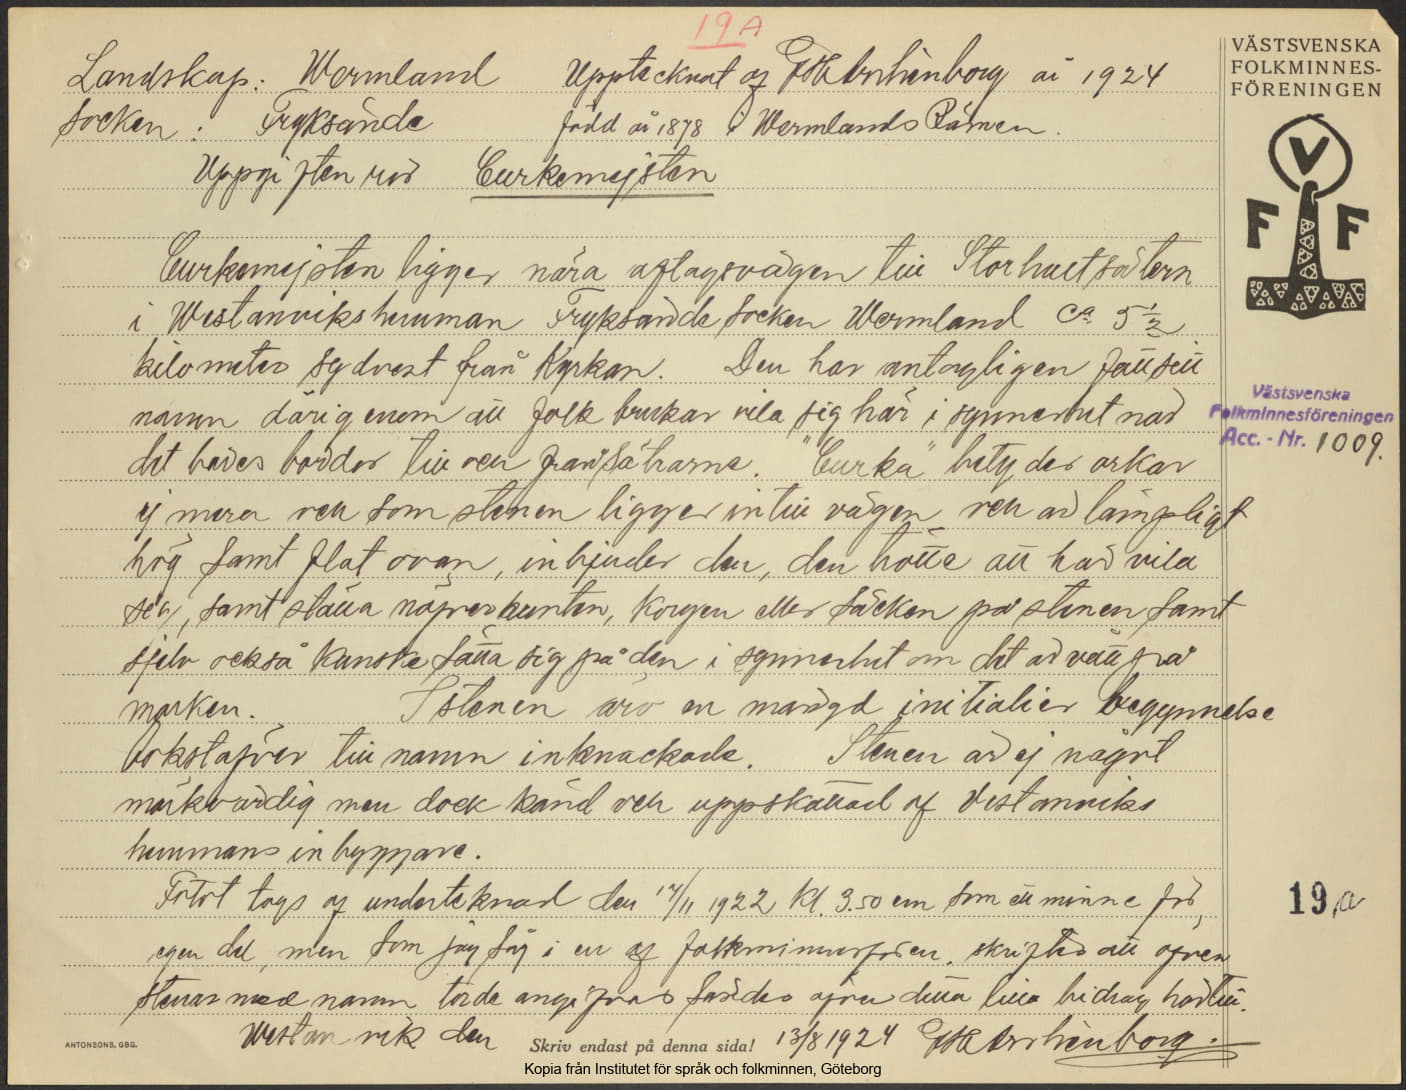 19A
VÄSTSVENSKA
FOLKMINNES-
FÖRENINGEN
Landskap: Wermland Upptecknat af år 1924
Socken: Fryksände född år 1878 i Wermlands Rämen.
Uppgiften rör Eurkemejsten
Eurkemejsten ligger nära aflagsvägen till Storhultsätern
i Westanvikshemman Fryksände Socken Wermland ca 5 1/2
kilometer sydvest från Kyrkan. Den har antagligen fått sitt
namn därigenom att folk brukar vila sig här i synnerhet när
det bäres bördor till och från Sätrarne. "Eurka" betyder orkar
ej mera och som stenen ligger intill vägen och är lämpligt
hög samt flat ovan, inbjuder den, den trötte att här vila
sig, samt ställa näfverkunten, Korgen eller Säcken på stenen samt
sjelv också Kanske sätta sig på den i synnerhet om det är vått på
marken. I stenen äro en mängd initialier begynnelse
bokstäfver till namn inknackade. Stenen är ej något
märkvärdig men dock känd och uppskattad af Vestanviks
hemmans inbyggare.
Fotot togs af undertecknad den /11 1922 Kl. 3.50 em som ett minne för
egen del, men som jag såg i en af skrifter att äfven
stenar med namn torde angifvas sändes äfven detta lilla bidrag härtill.
Westanvik den 13/8 1924
V
F F
Västsvenska
Folkminnesföreningen
Acc.-Nr. 1009.
19 a
ANTONSONS, GBG.
Skriv endast på denna sida!
Kopia från Institutet för språk och folkminnen, Göteborg